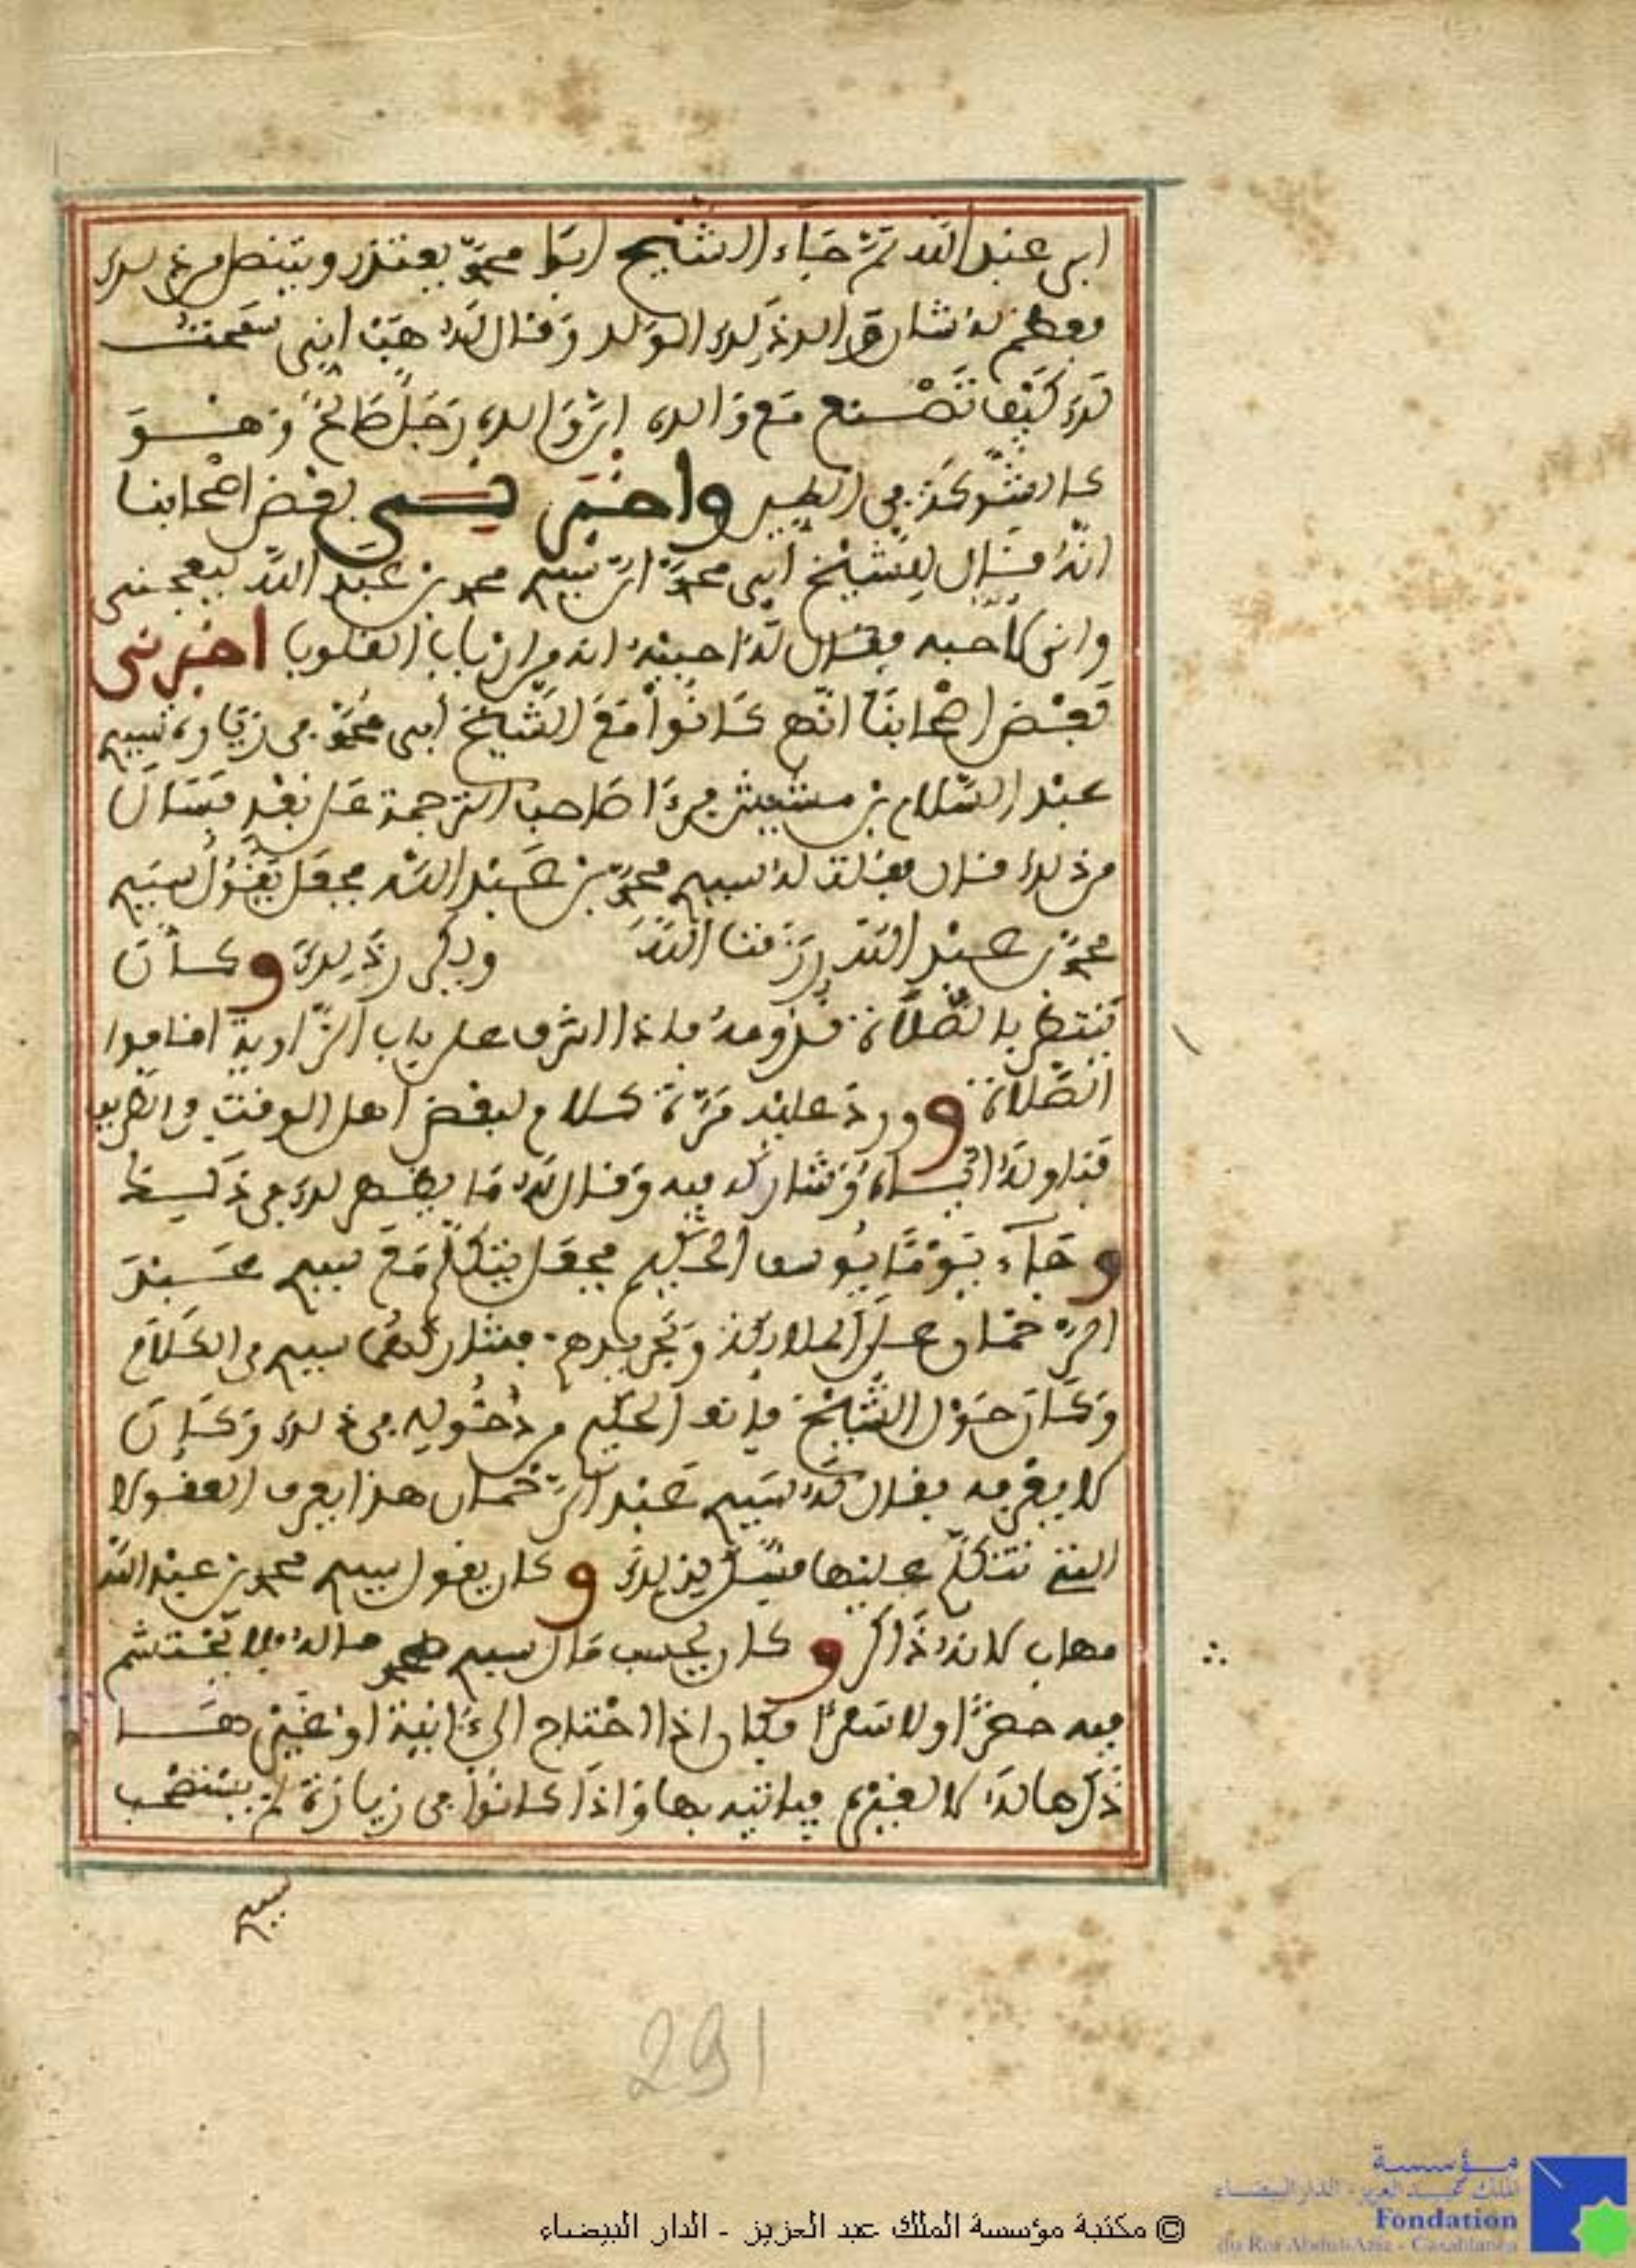 ابي عبد الله ثم جاء الشيخ ابا محمد يعتذر ويتنصل من ذلك
فعظم له شارق ذلك الولد وقال له هب اني سمحت
لك كيف تصنع مع والده ان والده رجل صالح وهو
كالشوكة في الطين واخبرني بعض اصحابنا
انه قال للشيخ ابي محمد ان سيدي محمد بن عبد الله ليعجبني
واني لاحبه فقال له احببه انه من ارباب القلوب اخبرني
بعض اصحابنا انهم كانوا مع الشيخ ابي محمد في زيارة سيدي
عبد السلام بن مشيش فرءا صاحب الترجمة على بعد فسال
من ذلك قال فقلت له سيدي محمد بن عبد الله فجعل يقول سيدي
محمد بن عبد الله رزقنا الله ويكرر ذلك وكان
ينتظر بالصلاة قدومه فاذا اشرف على باب الزاوية اقاموا
الصلاة وورد عليه مرة كلام لبعض اهل الوقت والطريق
فناوله اياه وشاركه فيه وقال له ما يظهر لك في ذلك
وجاء يوما يوسف الحكيم فجعل يتكلم مع سيدي عبد
الرحمان على الملائكة وتجريدهم فشاركهما سيدي في الكلام
وكان حول الشيخ فانف الحكيم من دخوله في ذلك وكان
لا يعرفه فقال له سيدي عبد الرحمان هذا يعرف العقول
التي نتكلم عليها فسل يزيدك وكان يقول سيدي محمد بن عبد الله
مهاب لانه ذاكر وكان يحسب مال سيدي محمد ماله فلا يحتشم
فيه حضرا ولا سفرا فكان اذا احتاج الى ءانية او غيرها
ذكرها له لا لغيره فياتيه بها واذا كانوا في زيارة لم يستصحب
سيدي
291
© مكتبة مؤسسة الملك عبد العزيز - الدار البيضاء
مؤسسة
الملك عبد العزيز - الدار البيضاء
Fondation
du Roi Abdul-Aziz - Casablanca